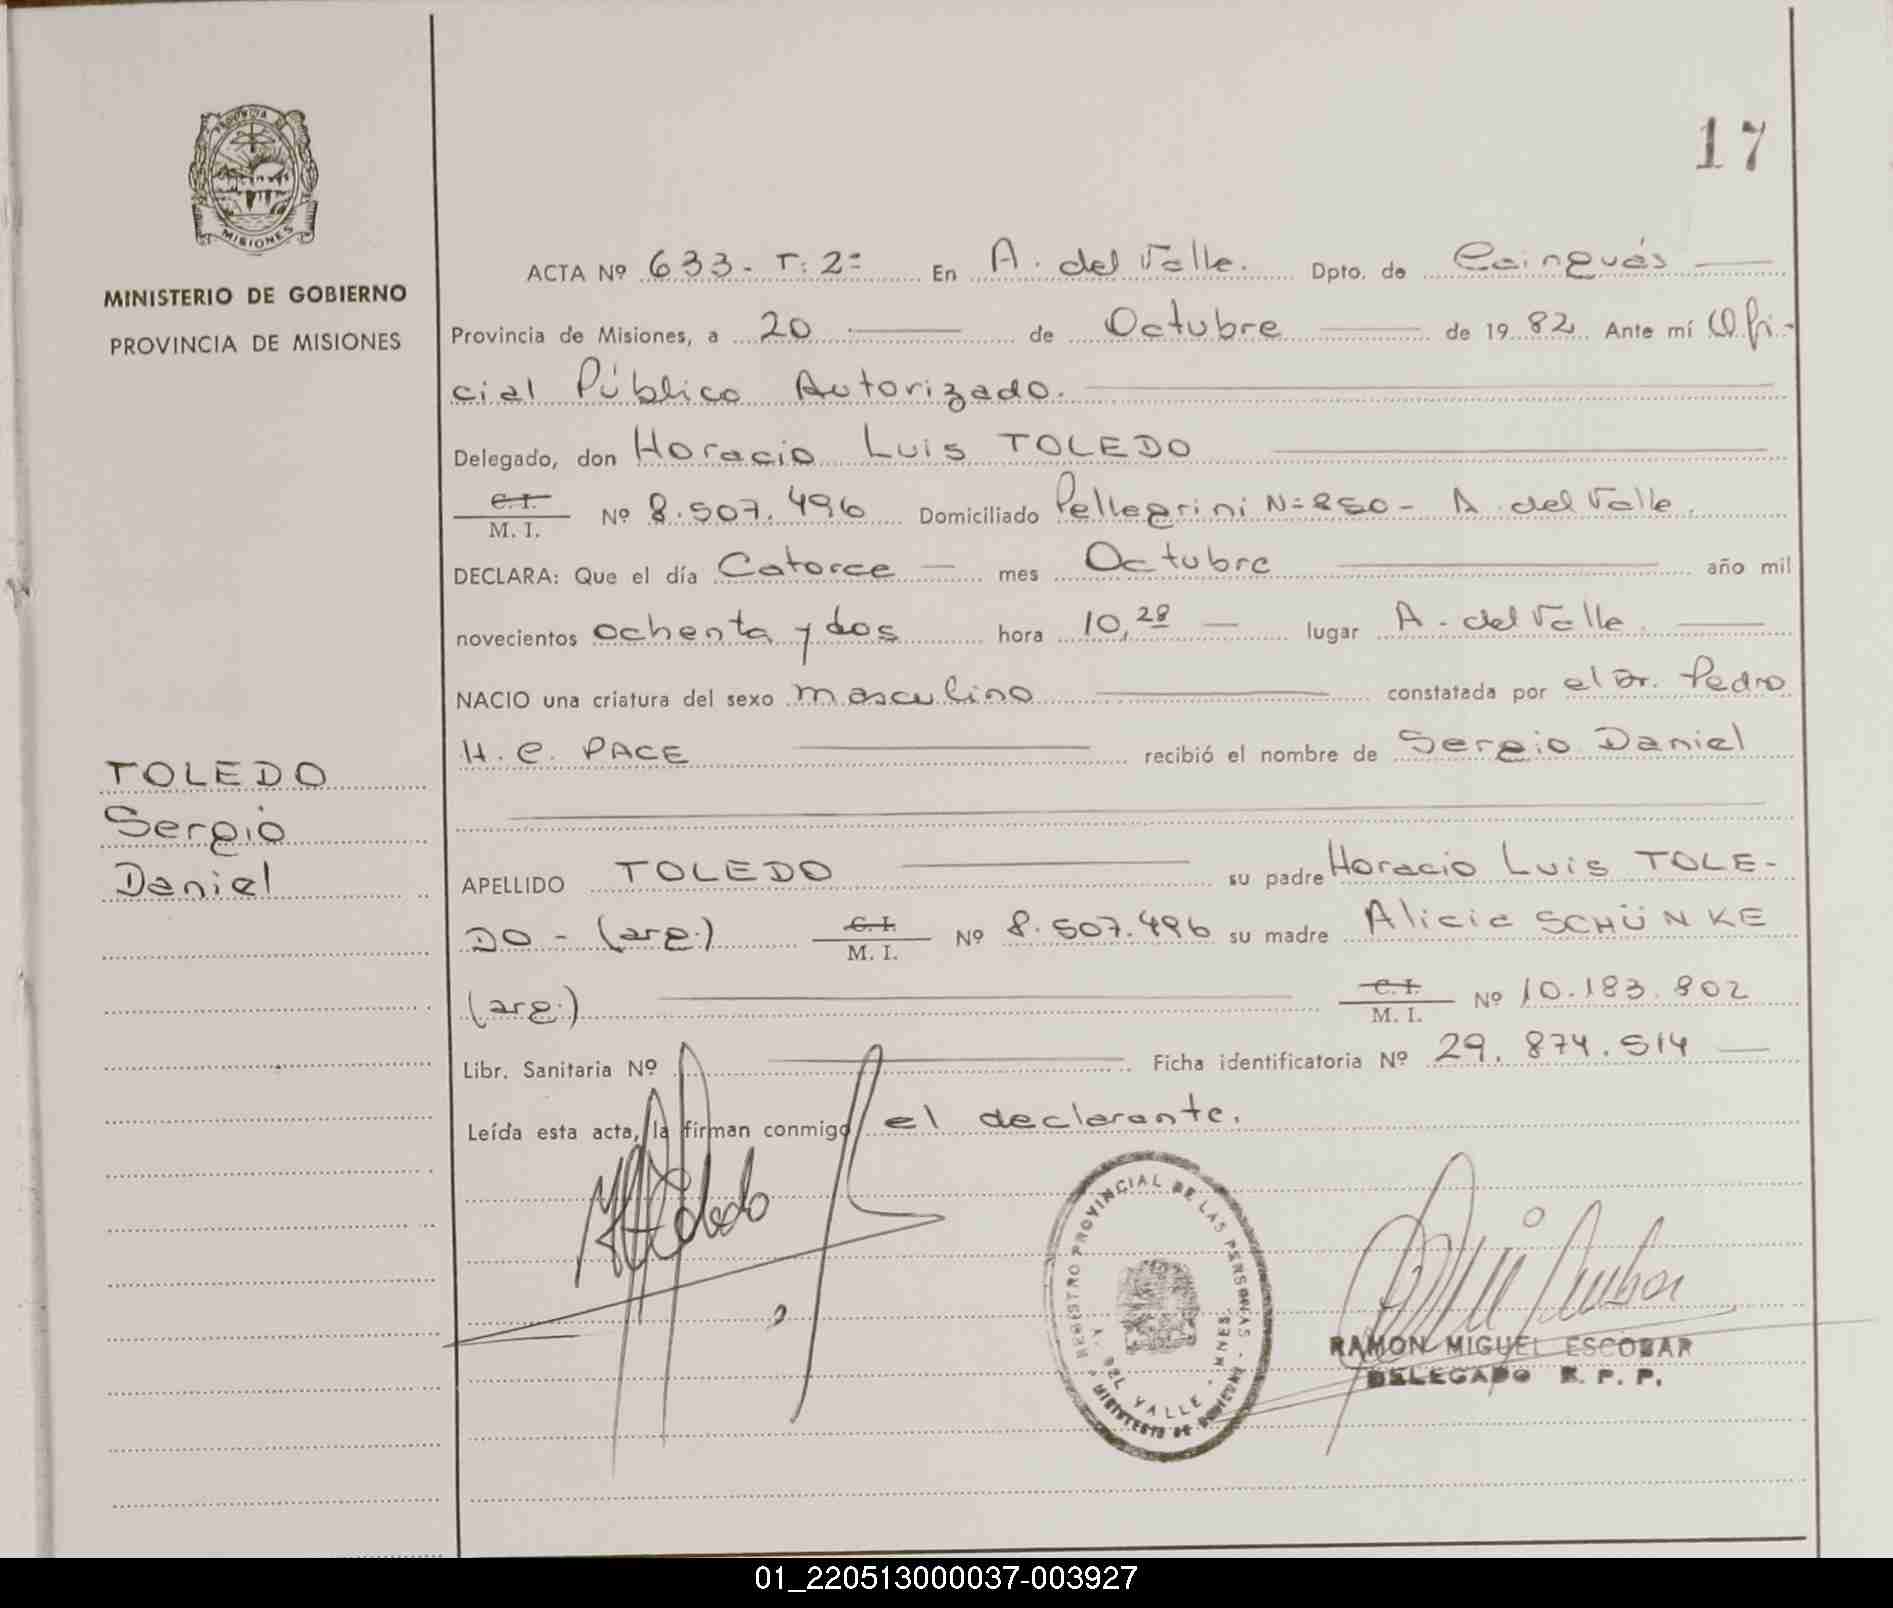 PROVINCIA DE
MISIONES
MINISTERIO DE GOBIERNO
PROVINCIA DE MISIONES
TOLEDO
Sergio
Daniel
17
ACTA Nº 633- T: 2º En A. del Valle. Dpto. de Cainguás
Provincia de Misiones, a 20 de Octubre de 1982. Ante mí Ofi-
cial Público Autorizado.
Delegado, don Horacio Luis TOLEDO
C. I.
M. I. Nº 8.507.496 Domiciliado Pellegrini Nº 850 - A. del Valle.
DECLARA: Que el día Catorce mes Octubre año mil
novecientos ochenta y dos hora 10,28 lugar A. del Valle.
NACIO una criatura del sexo masculino constatada por el Dr. Pedro
H. C. PACE recibió el nombre de Sergio Daniel
APELLIDO TOLEDO su padre Horacio Luis TOLE-
DO - (arg.) C. I. M. I. Nº 8.507.496 su madre Alicia SCHÜNKE
(arg.) C. I. M. I. Nº 10.183.802
Libr. Sanitaria Nº Ficha identificatoria Nº 29.874.514
Leída esta acta, la firman conmigo el declarante.
Toledo
REGISTRO PROVINCIAL DE LAS PERSONAS
A. DEL VALLE - MNES.
RAMON MIGUEL ESCOBAR
DELEGADO R. P. P.
01_220513000037-003927